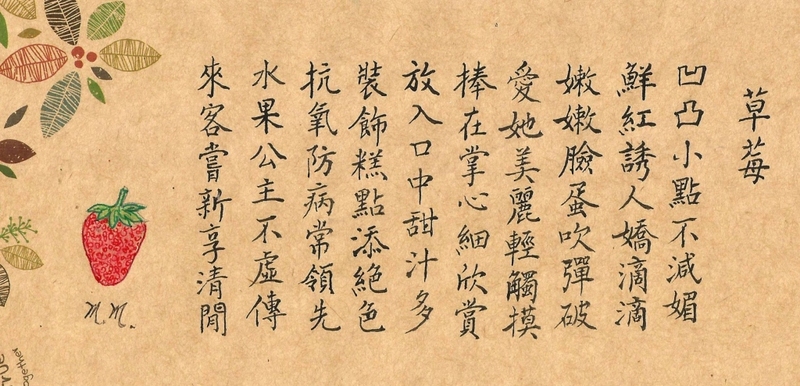 草莓
凹凸小點不減媚
鮮紅誘人嬌滴滴
嫩嫩臉蛋吹彈破
愛她美麗輕觸摸
捧在掌心細欣賞
放入口中甜汁多
裝飾糕點添絕色
抗氧防病常領先
水果公主不虛傳
來客嘗新享清閒
M.M.
together